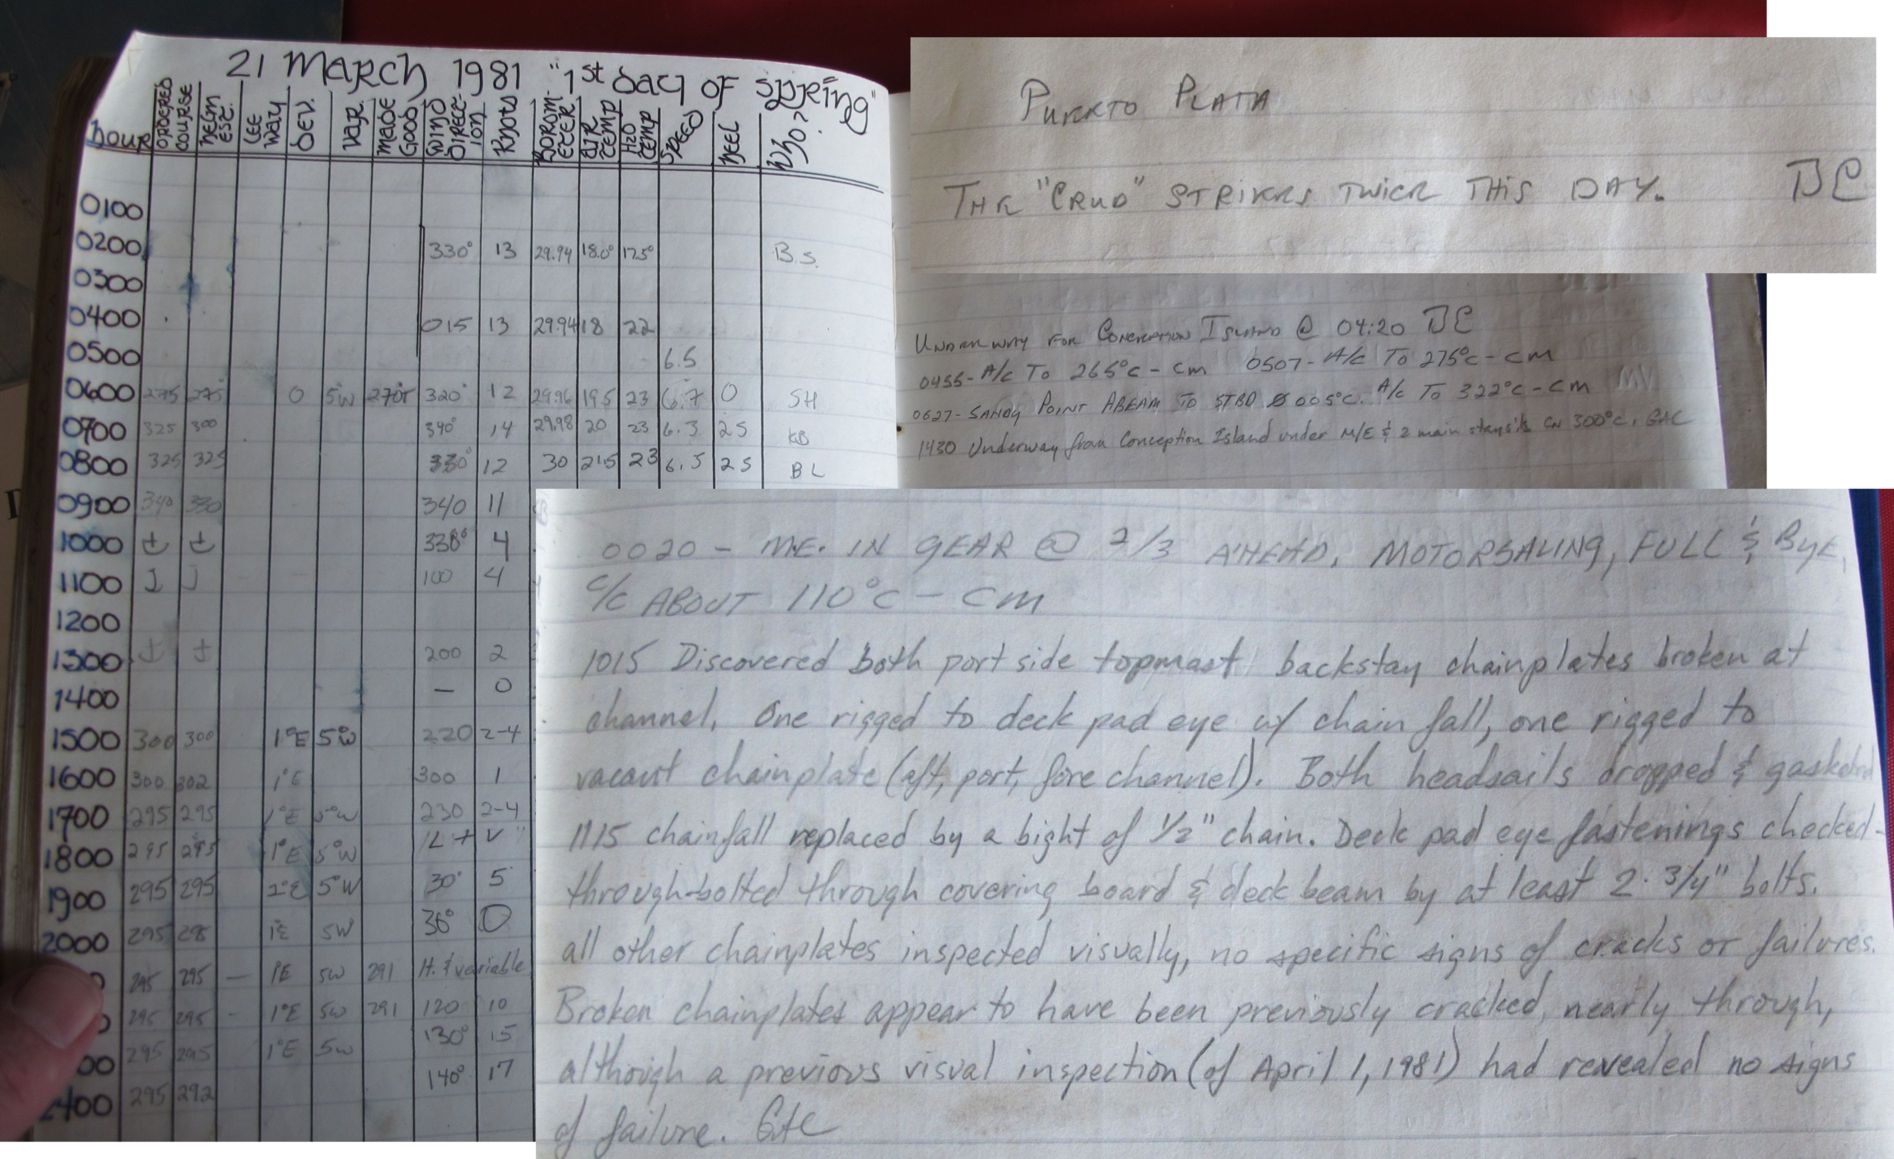 21 March 1981 "1st day of spring"
Hour ORDERED COURSE HELM EST. LEE WAY DEV. VAR. MADE GOOD WIND DIRECTION KNOTS BOROMETER AIR TEMP H2O TEMP SPEED HEEL WHO?
0100
0200 330° 13 29.94 18.0° 17.5° B.S.
0300
0400 015 13 29.94 18 22
0500 6.5
0600 275 275° 0 5°W 270T 320° 12 29.96 19.5 23 6.7 0 SH
0700 325 300 340° 14 29.98 20 23 6.3 25 KB
0800 325 325 330° 12 30 21.5 23 6.5 25 BL
0900 340 330 340 11
1000 338° 4
1100 100 4
1200
1300 200 2
1400 — 0
1500 300 300 1°E 5°W 220 2-4
1600 300 302 1°E 300 1
1700 295 295 1°E 5°W 230 2-4
1800 295 295 1°E 5°W Lt + V"
1900 295 295 1°E 5°W 30° 5
2000 295 1°E 5W 36° 0
295 295 — 1°E 5W 291 lt. & variable
295 295 - 1°E 5W 291 120 10
295 295 1°E 5W 130° 15
2400 295 292 140° 17
PUERTO PLATA
THE "CRUD" STRIKES TWICE THIS DAY. BC
UNDERWAY FOR CONCEPTION ISLAND @ 04:20 BC
0455- A/C TO 265°C - CM 0507- A/C TO 275°C - CM
0627- SANDY POINT ABEAM TO STBD 005°C. A/C TO 322°C - CM
1430 Underway from Conception Island under M/E & 2 main stays'ls on 300°C. GAC
0020 - M.E. IN GEAR @ 2/3 AHEAD, MOTORSALING, FULL & BYE,
C/C ABOUT 110°C - CM
1015 Discovered both port side topmast backstay chainplates broken at
channel. One rigged to deck pad eye w/ chain fall, one rigged to
vacant chainplate (aft, port, fore channel). Both headsails dropped & gasketed
1115 chainfall replaced by a bight of 1/2" chain. Deck pad eye fastenings checked-
through-bolted through covering board & deck beam by at least 2. 3/4" bolts.
all other chainplates inspected visually, no specific signs of cracks or failures.
Broken chainplates appear to have been previously cracked, nearly through,
although a previous visual inspection (of April 1, 1981) had revealed no signs
of failure. GAC